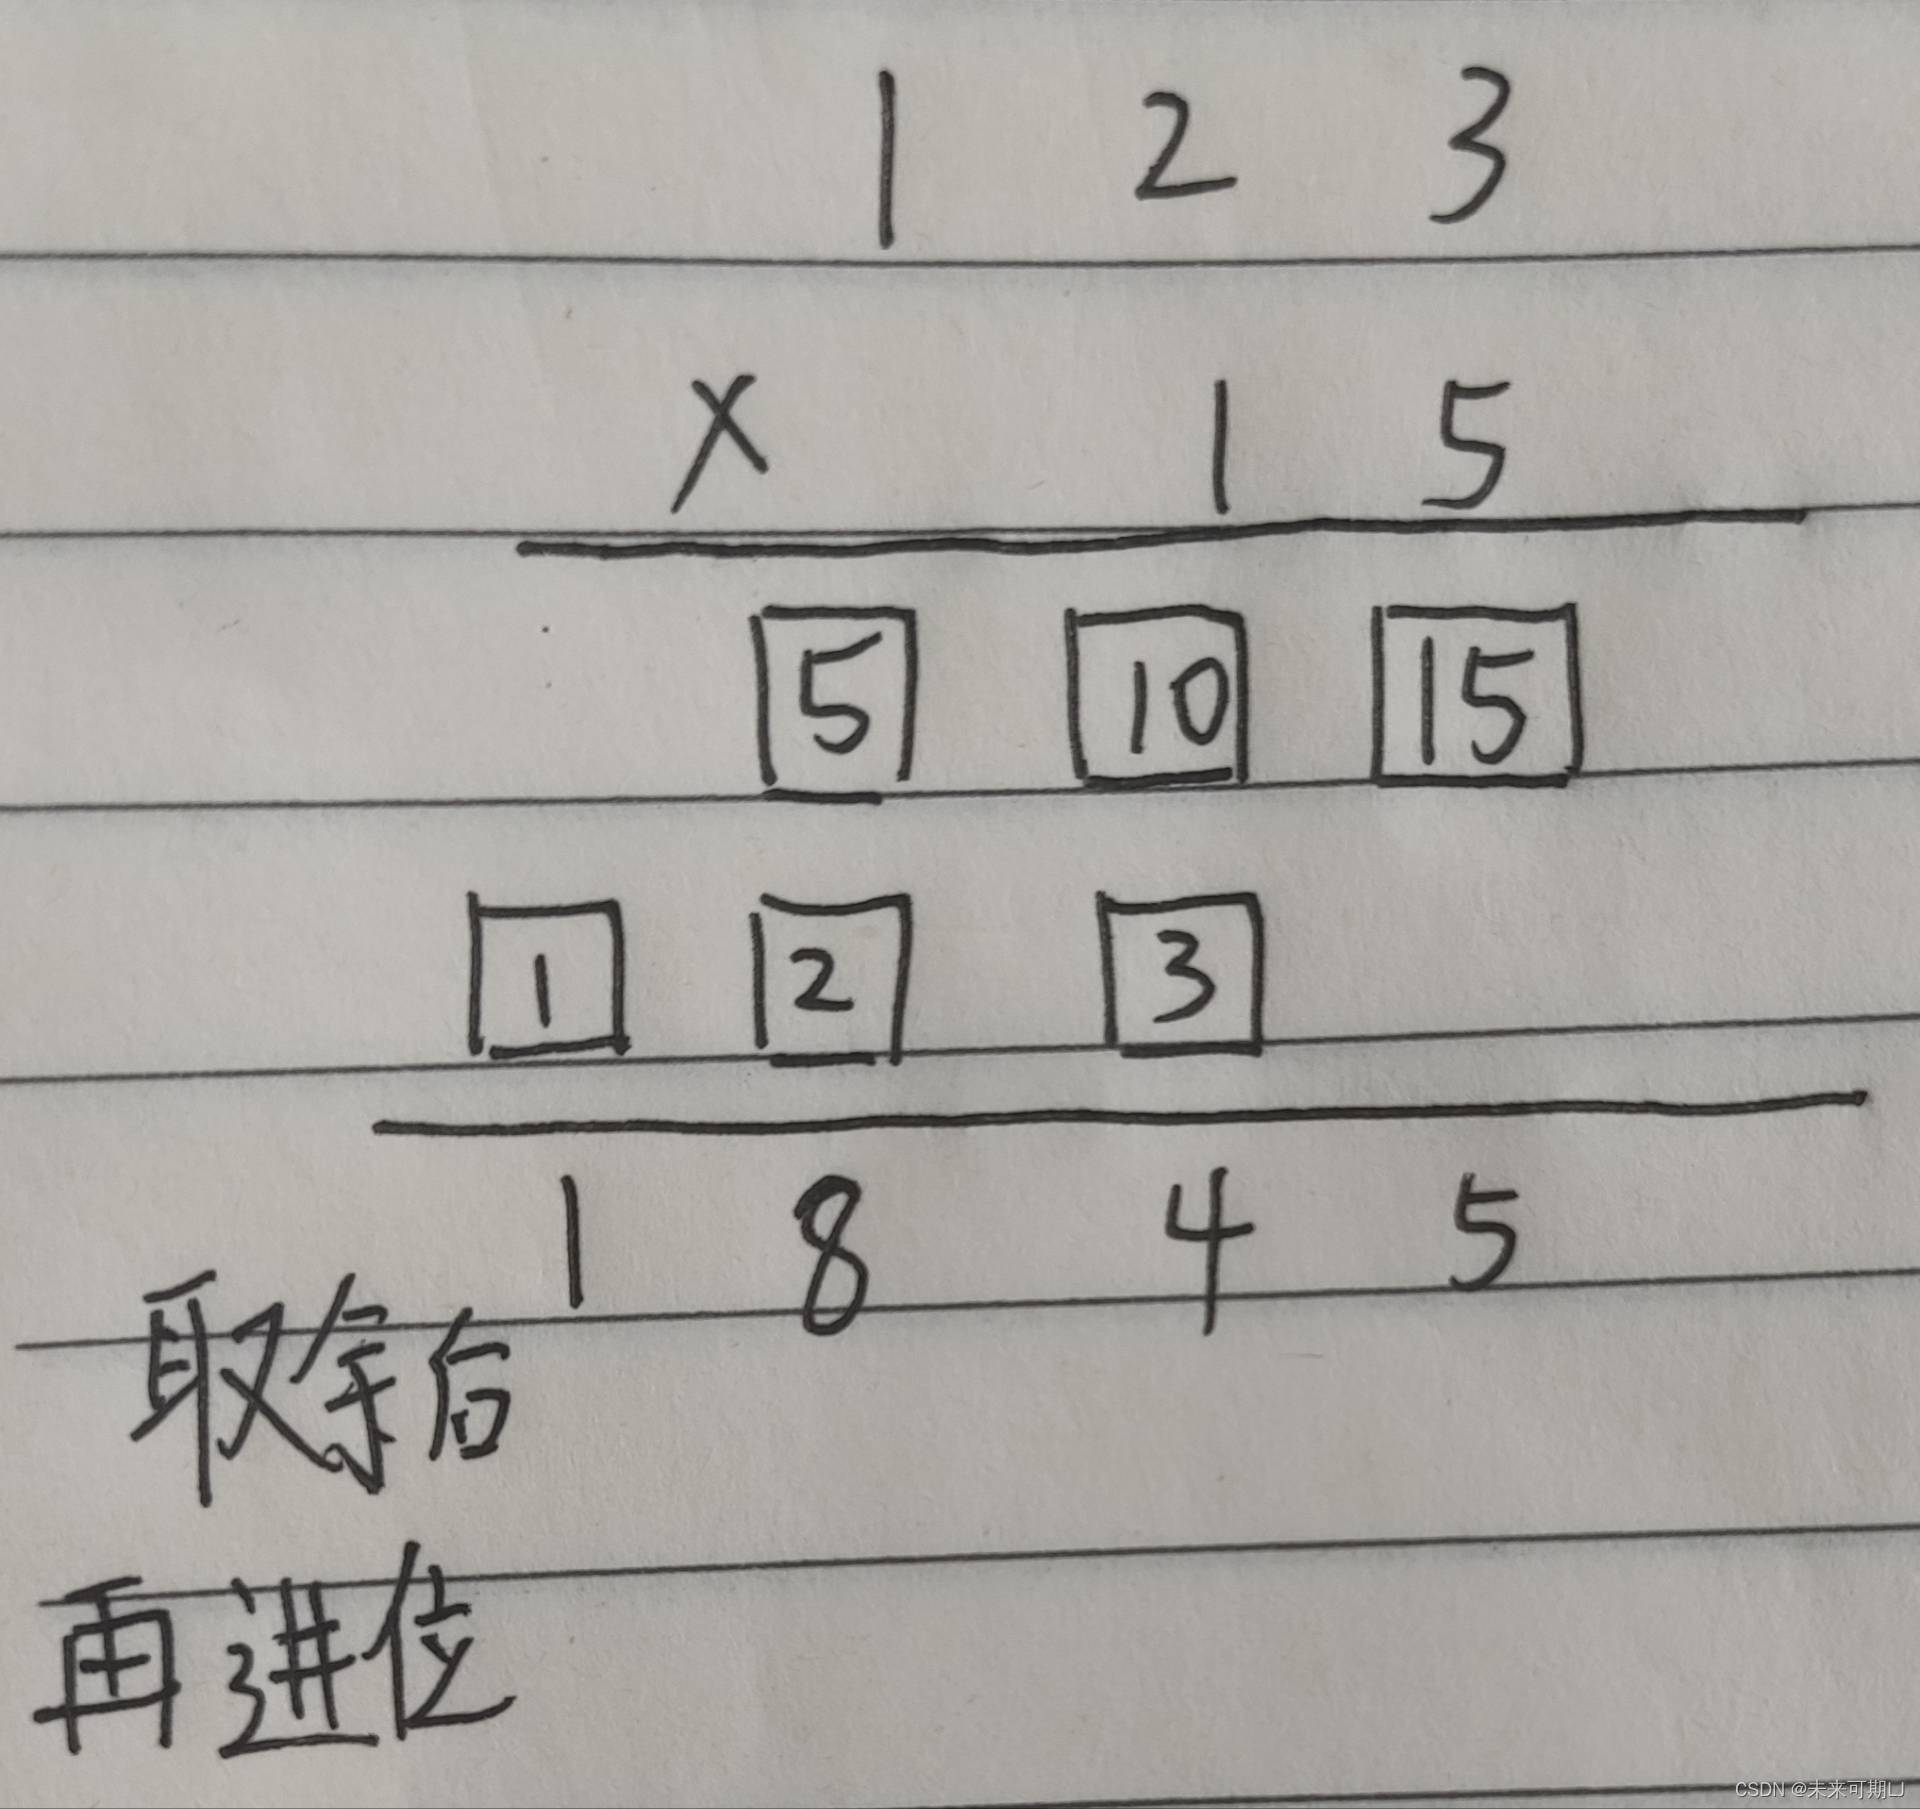 1 2 3
× 1 5
5 10 15
1 2 3
1 8 4 5
取余后
再进位
CSDN @未来可期LJ